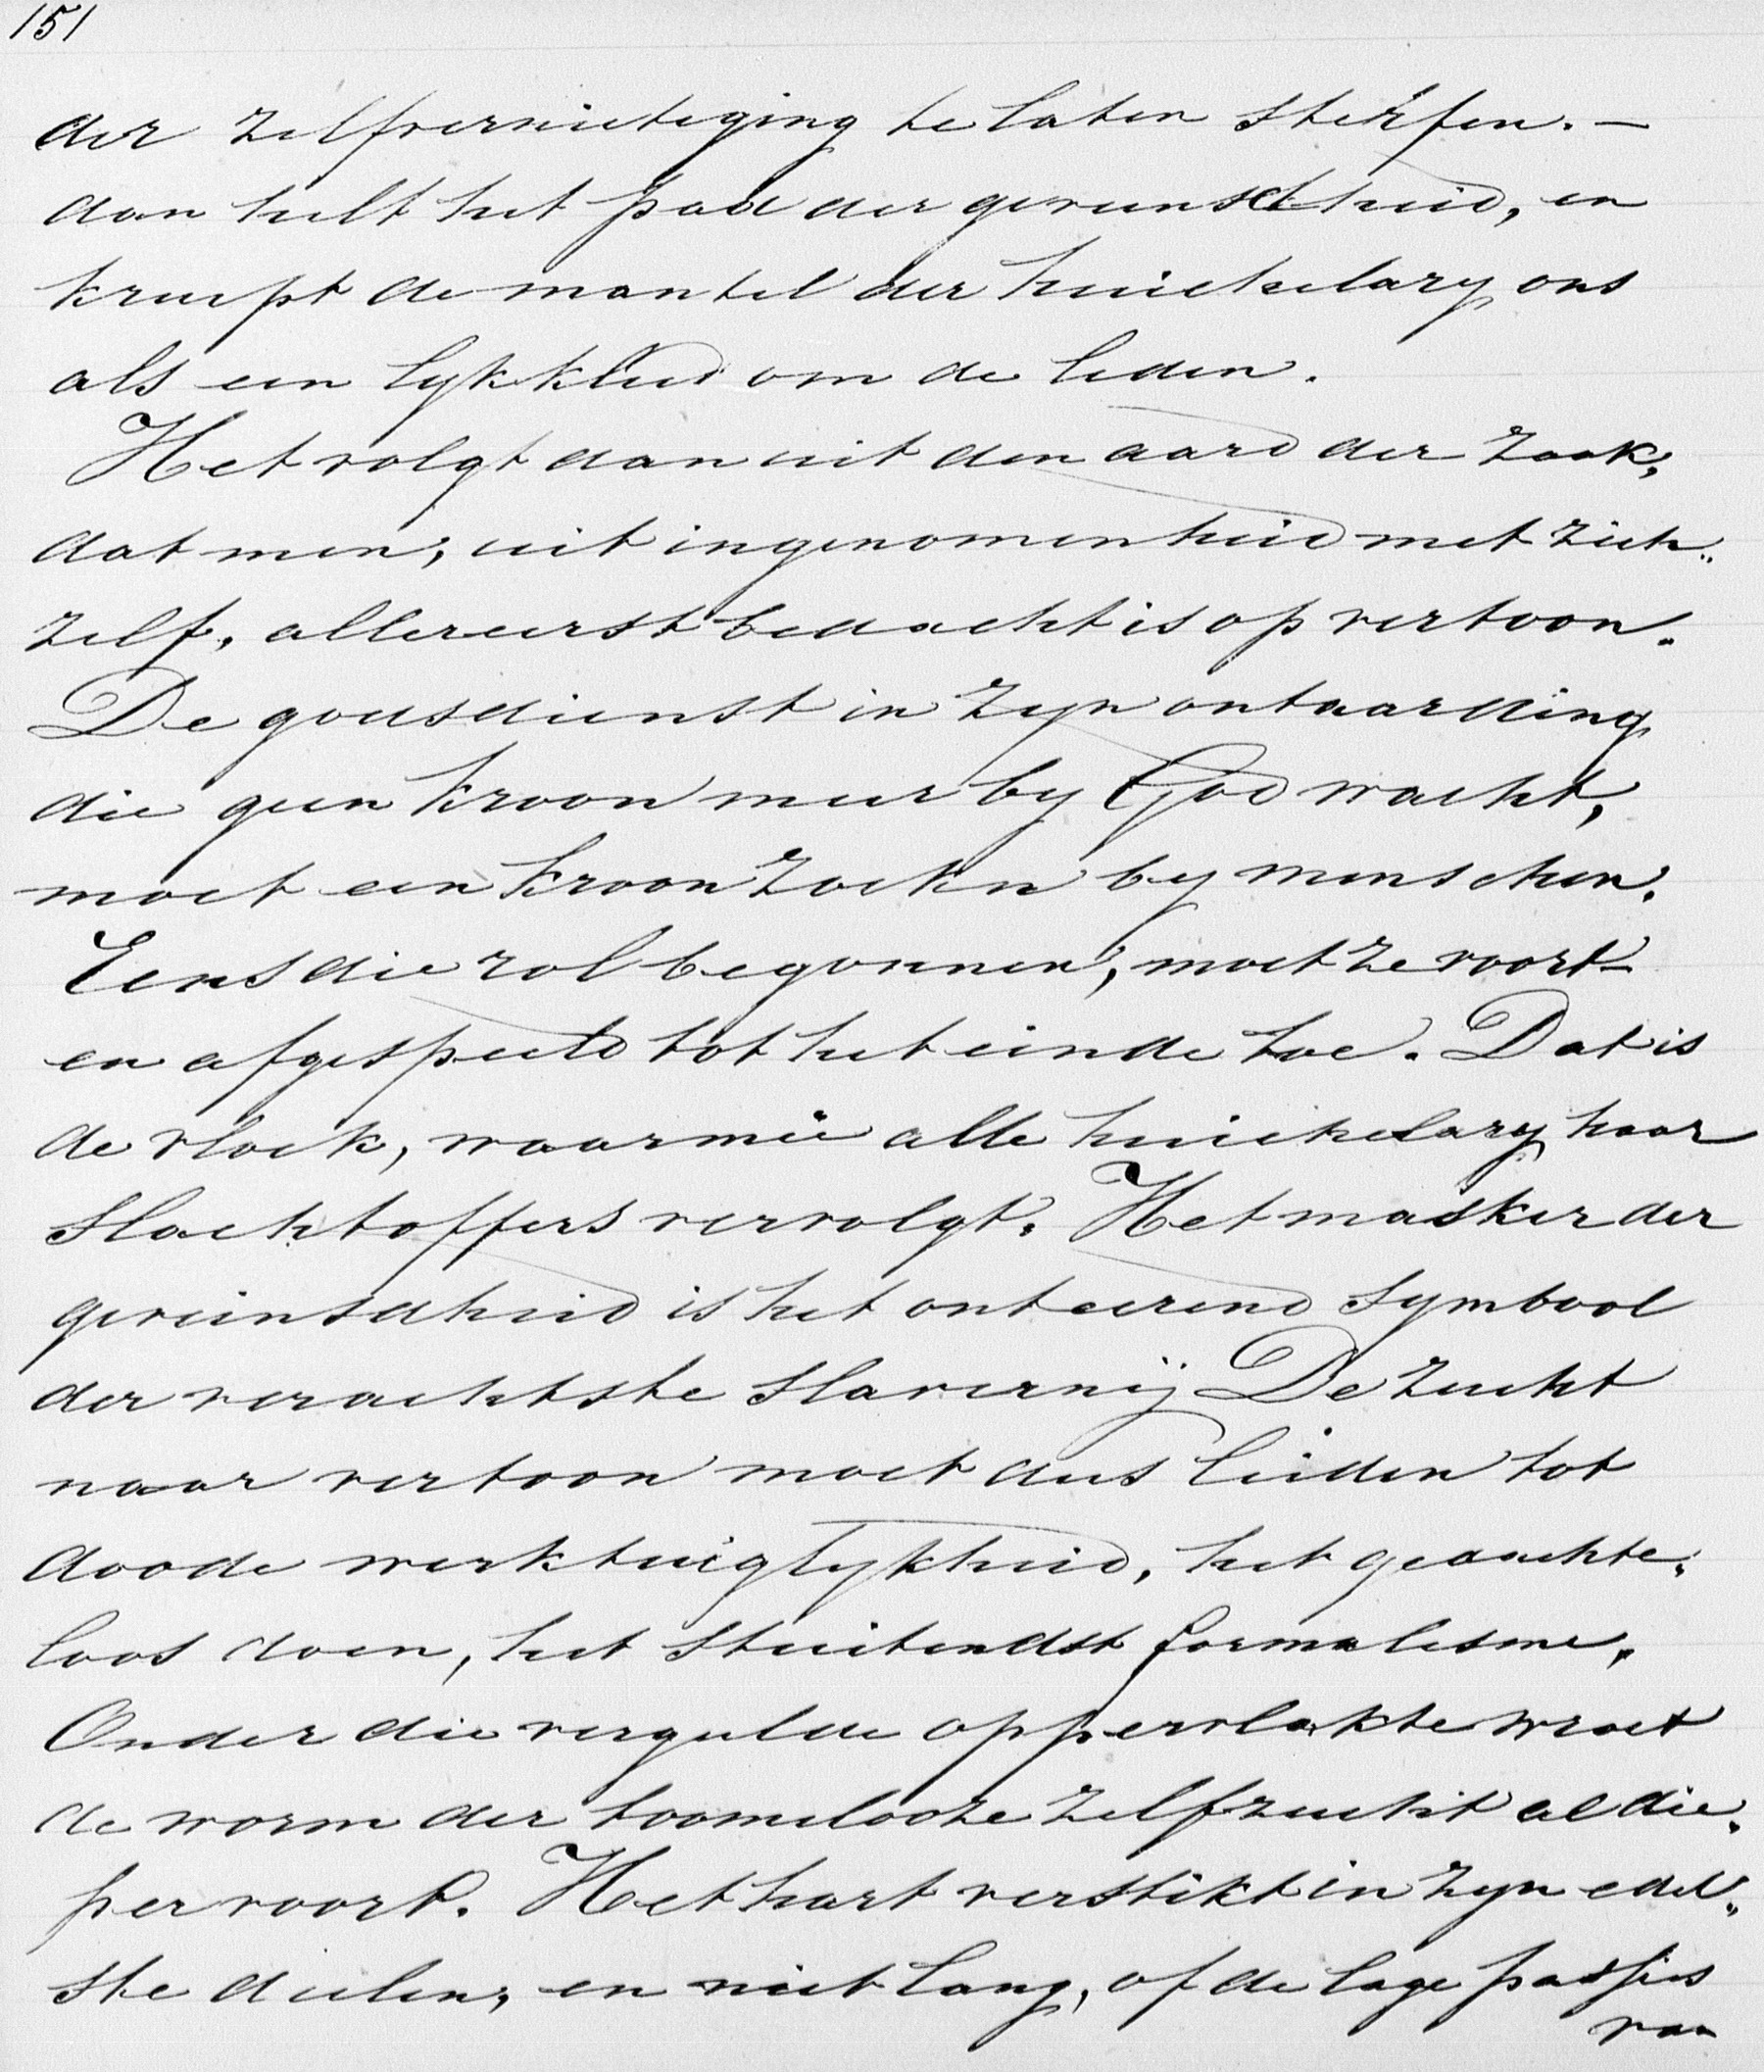 151
der zelfvernietiging te laten sterfen. —
dan helt het pad der geveinsdheid, en
kruipt de mantel der huichelary ons
als een lykkleed om de leden.
Het volgt dan uit den aard der zaak,
dat men, uit ingenomenheid met zich„
zelf, allereerst bedacht is op vertoon.
De godsdienst in zyn ontaarding
die geen kroon meer by God wacht,
moet een kroon zoeken by menschen.
Eens die rol begonnen, moet ze voort-
en afgespeeld tot het einde toe. Dat is
de vloek, waarmeê alle huichelary haar
slachtoffers vervolgt. Het masker der
geveinsdheid is het onteerend symbool
der verachtste slavernij De zucht
naar vertoon moet dus leiden tot
doode werktuiglykheid, het gedachte„
loos doen, het stuitendst formalisme.
Onder die vergulde oppervlakte wroet
de worm der toomelooze zelfzucht al die„
per voort. Het hart verstikt in zyn edel„
ste deelen, en niet lang, of de lage passies
van